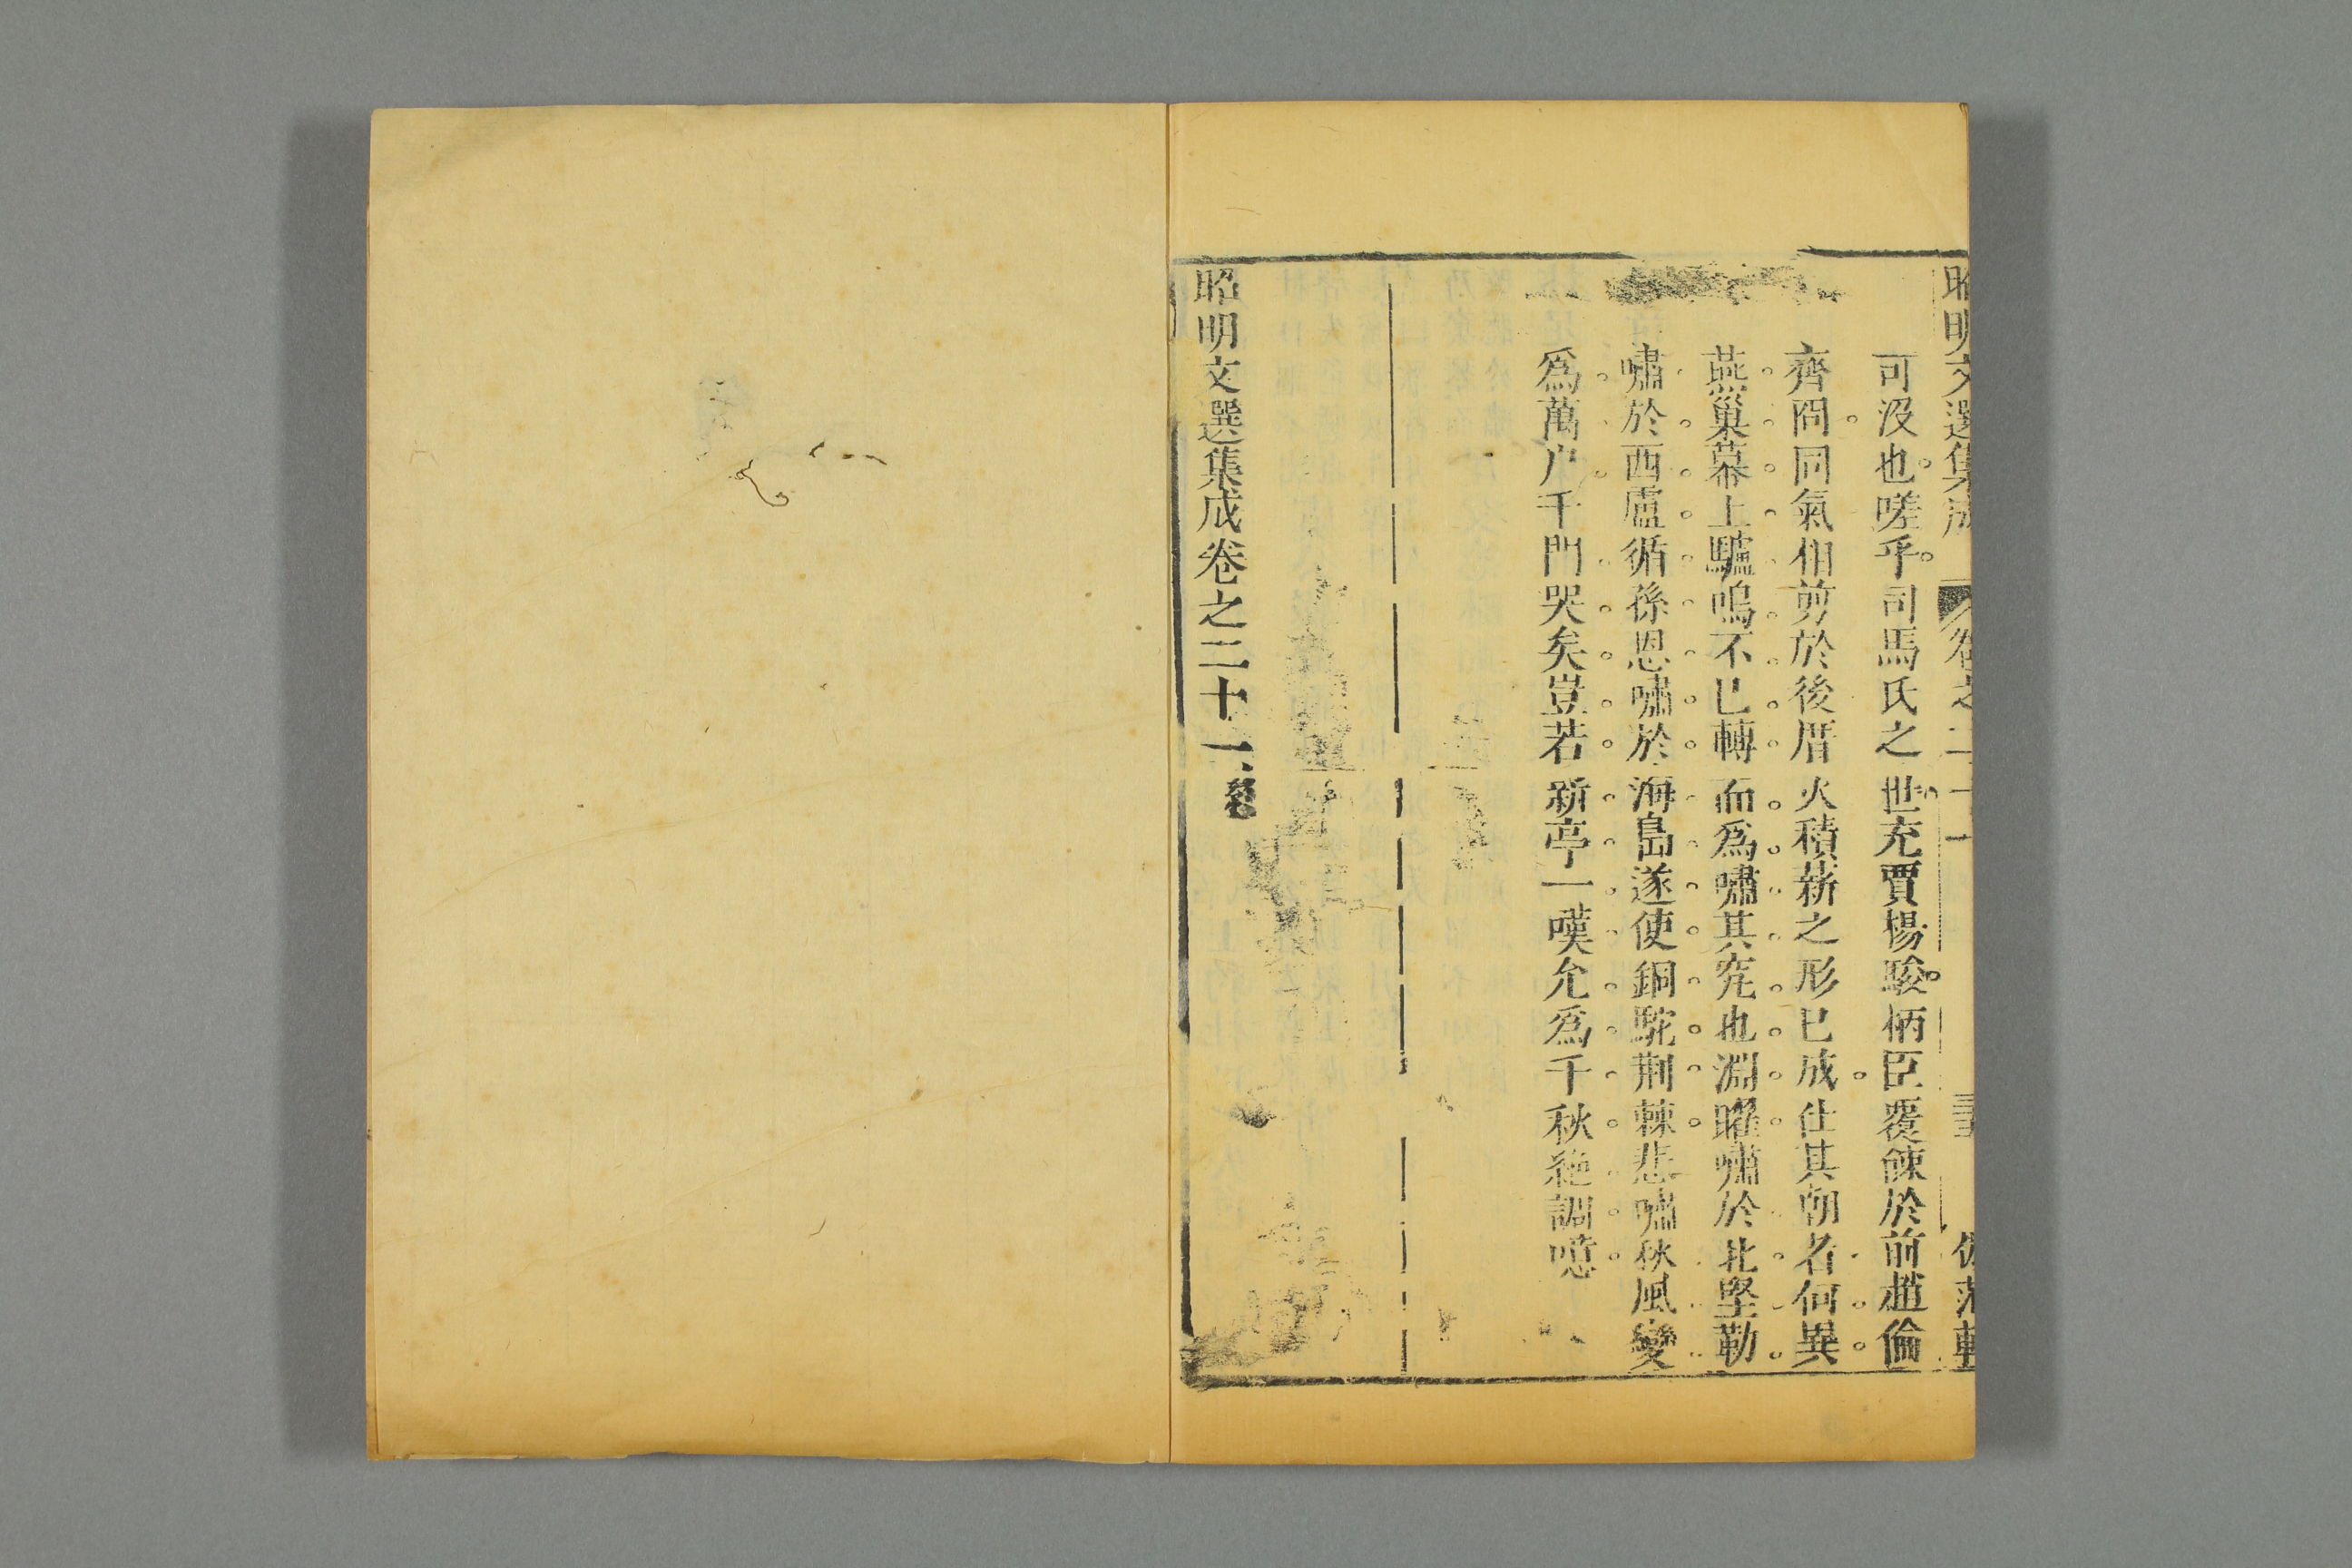 昭明文選集成 卷之二十一
可没也嗟乎司馬氏之世充賈楊駿柄臣覆餗於前趙倫
齊冏同氣相剪於後厝火積薪之形已成仕其朝者何異
燕巢幕上驢鳴不已轉而爲嘯其究也淵曜嘯於北堅勒
嘯於西盧循孫恩嘯於海島遂使銅駝荆棘悲嘯秋風變
爲萬户千門哭矣豈若新亭一嘆允爲千秋絶調噫
昭明文選集成卷之二十一終